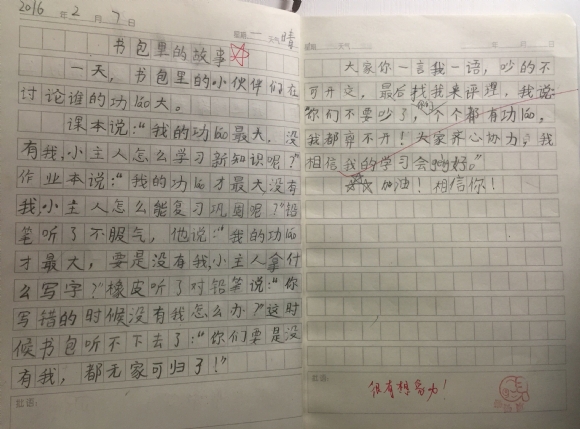 2016年2月7日 星期一 天气晴
书包里的故事
一天，书包里的小伙伴们在
讨论谁的功lao大。
课本说：“我的功lao最大，没
有我，小主人怎么学习新知识呢？”
作业本说：“我的功lao才最大没有
我，小主人怎么能复习巩固呢？”铅
笔听了不服气，他说：“我的功lao
才最大，要是没有我，小主人拿什
么写字？”橡皮听了对铅笔说：“你
写错的时候没有我怎么办？”这时
候书包听不下去了：“你们要是没
有我，都无家可归了！”
批语：
星期 天气 年 月 日
大家你一言我一语，吵的不
可开交，最后找我来评理，我说
“你们不要吵了，个个都有功lao，
我都离不开！大家齐心协力，我
相信我的学习会gèng好。”
加油！相信你！
批语：
很有想象力！